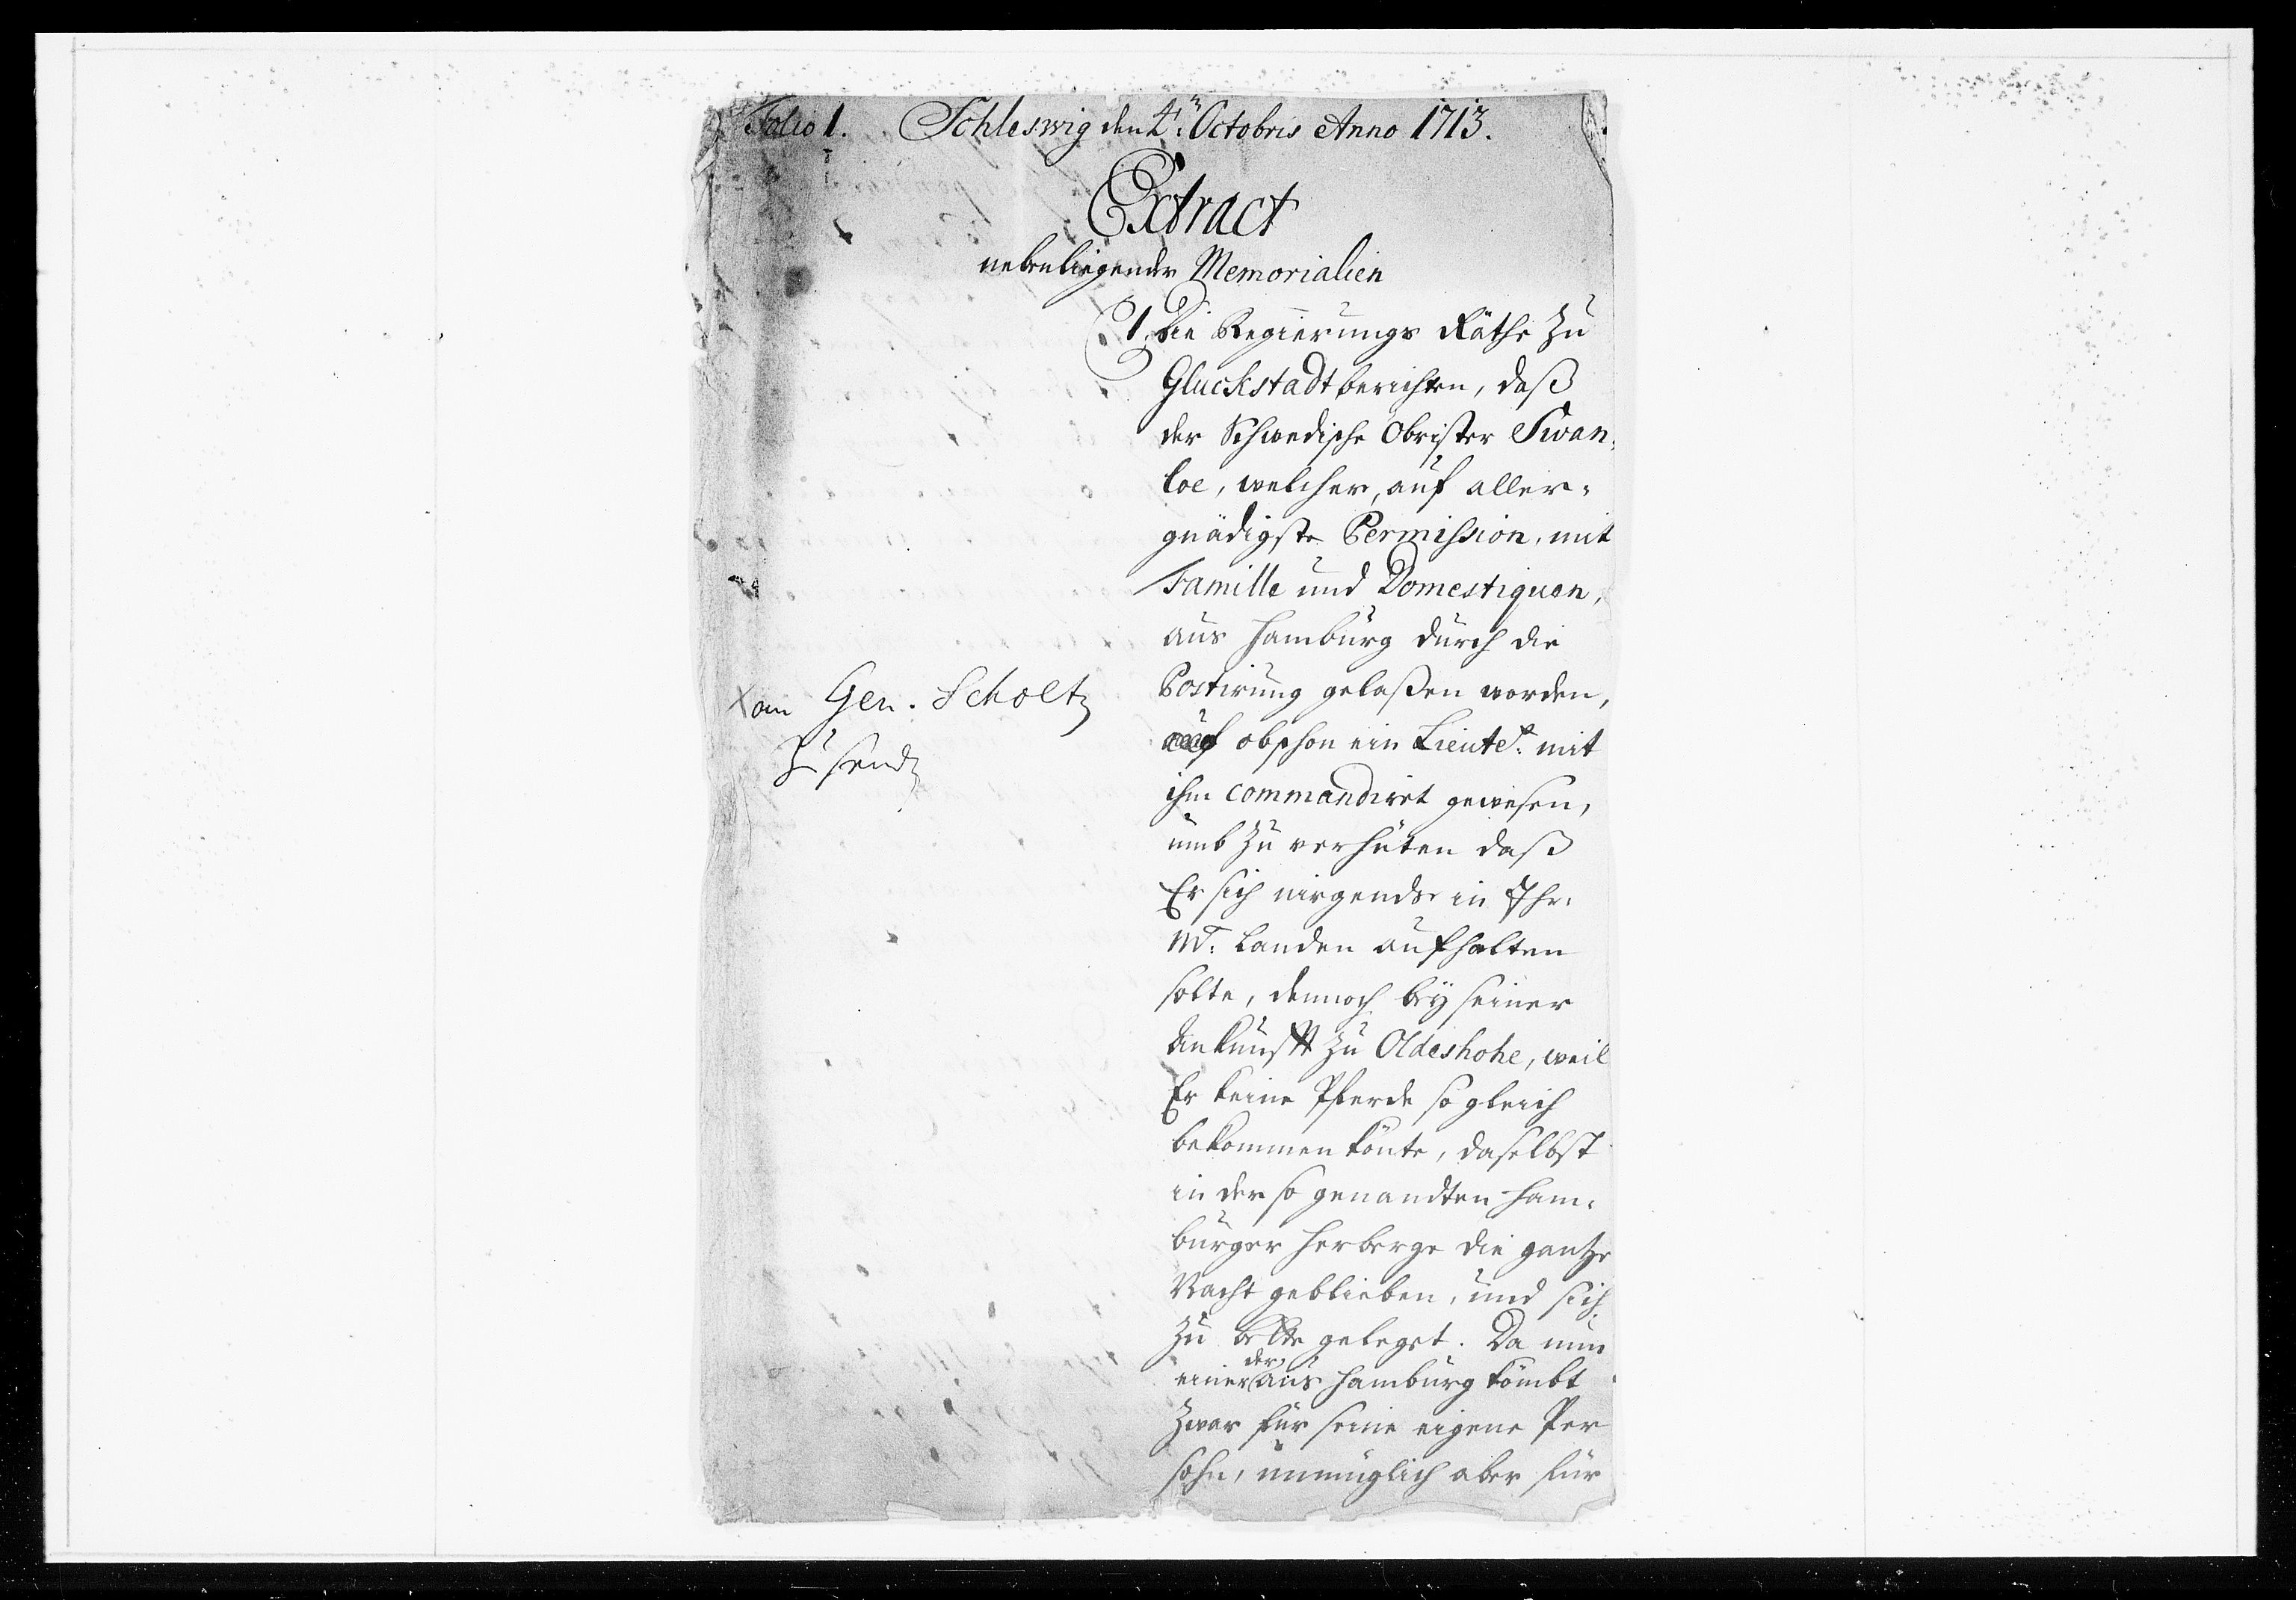 Folio 1. Schleswig den 4.ⁿ Octobris Anno 1713.
Extract
nebenliegender Memorialien
1. Die Regierungs Räthe zu
Gluckstadt berichten, daß
der Schwedische Obrister Swan-
loe, welcher, auf aller-
gnädigste Permission, mit
Famille und Domestiquen,
aus Hamburg durch die
Postirung gelaßen worden,
obschon ein Lieutet: mit
ihm commandiret gewesen,
umb zu verhüten daß
Er sich nirgends in Ihr.
Mt: Landen aufhalten
solte, dennoch bey seiner
Ankunfft zu Oldeshohe, weil
Er keine Pferde so gleich
bekommen könte, daselbst
in der so genandten Ham-
burger Herberge die gantze
Nacht geblieben, und sich
zu Bette geleget. Da nun
einer der aus Hamburg kömbt
zwar für seine eigene Per
sohn, unmüglich aber für
X an Gen. Scholtz
zu send